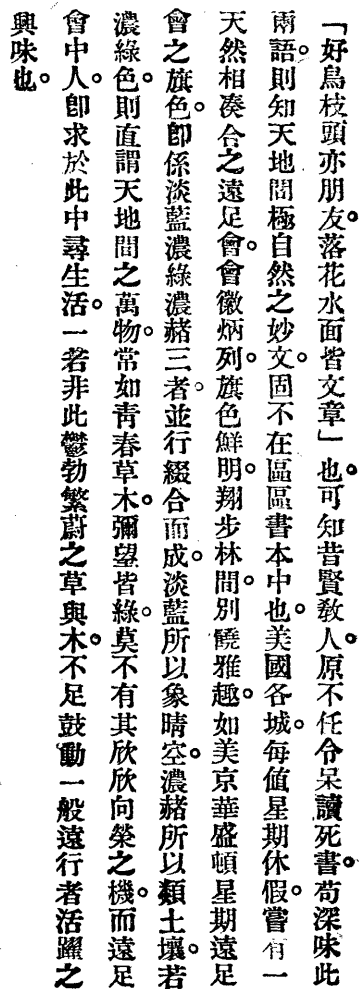 「好鳥枝頭亦朋友。落花水面皆文章」也。可知昔賢敎人。原不任令呆讀死書。苟深味此
兩語。則知天地間極自然之妙文。固不在區區書本中也。美國各城。每値星期休假。嘗有一
天然相凑合之遠足會。會徽炳列。旗色鮮明。翔步林間。別饒雅趣。如美京華盛頓星期遠足
會之旗色。卽係淡藍濃綠濃赭三者。並行綴合而成。淡藍所以象晴空。濃赭所以類土壤。若
濃綠色。則直謂天地間之萬物。常如靑春草木。彌望皆綠。莫不有其欣欣向榮之機。而遠足
會中人。卽求於此中尋生活。一若非此鬱勃繁蔚之草與木。不足鼓動一般遠行者活躍之
興味也。